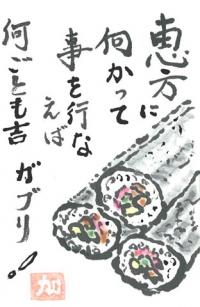 恵方に
向かって
事を行な
えば
何ごとも吉
ガブリ!
加